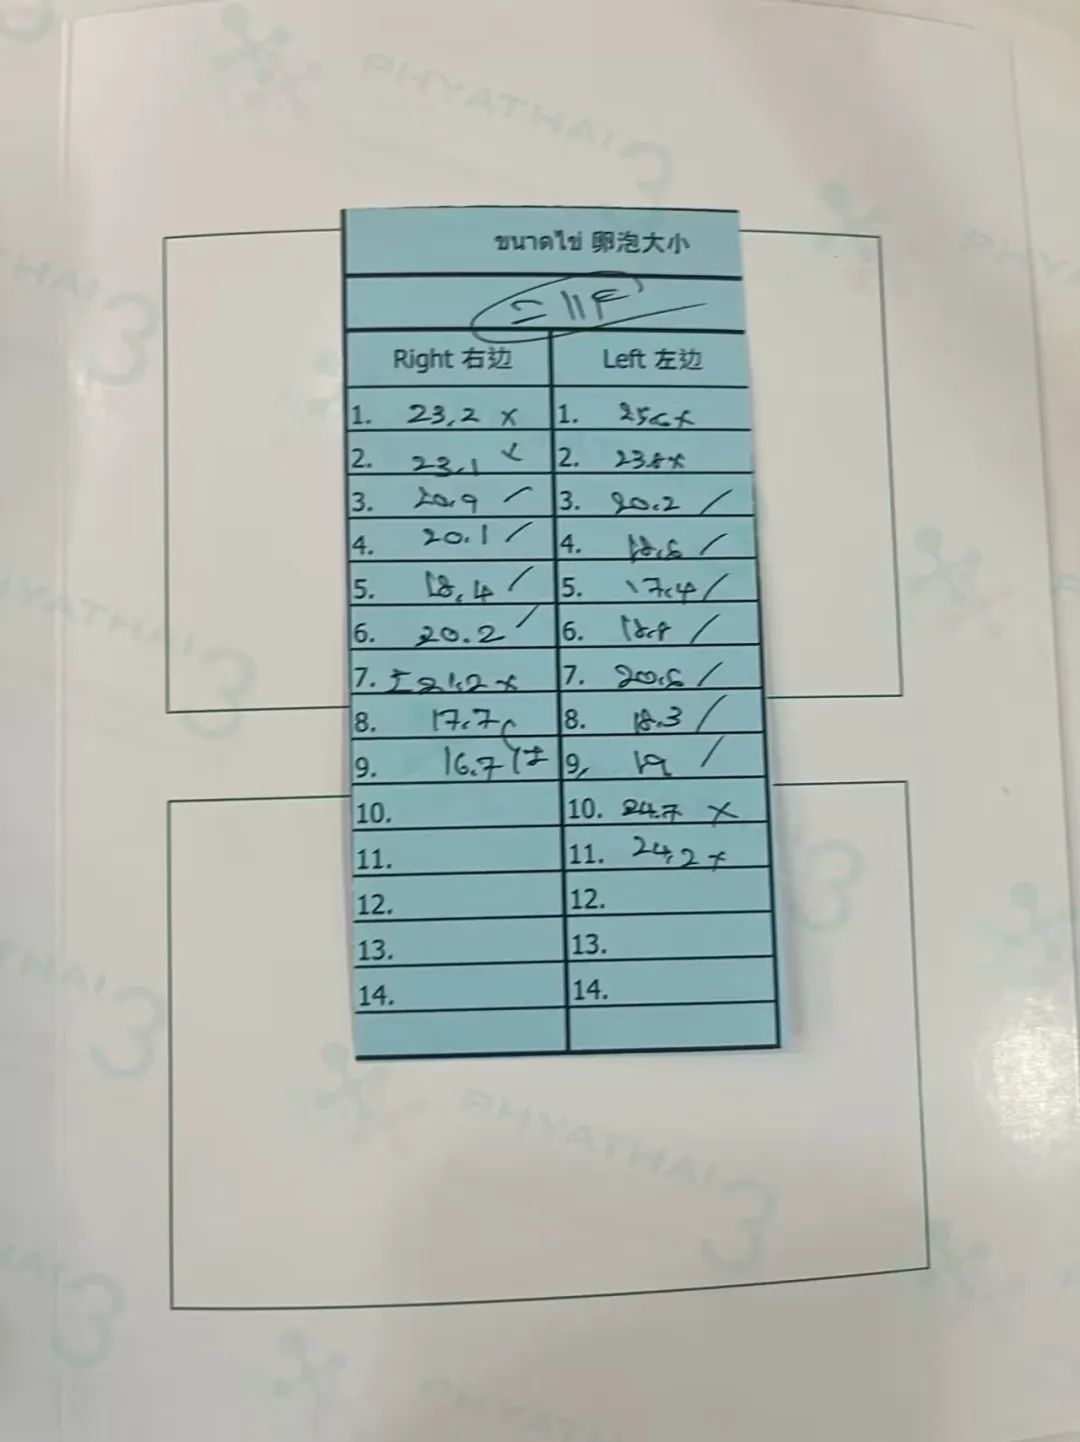 PHYATHAI 3
ขนาดไข่ 卵泡大小
= 11F
Right 右边 Left 左边
1. 23.2 x 1. 25.  x
2. 23.1 x 2. 23.8 x
3. 20.9 / 3. 20.2 /
4. 20.1 / 4. 18.6 /
5. 18.4 / 5. 17.4 /
6. 20.2 / 6. 18.8 /
7. 21.2 x 7. 20.6 /
8. 17.7 8. 18.3 /
9. 16.7 9. 19 /
10. 10. 24.7 x
11. 11. 24.2 x
12. 12.
13. 13.
14. 14.
PHYATHAI 3